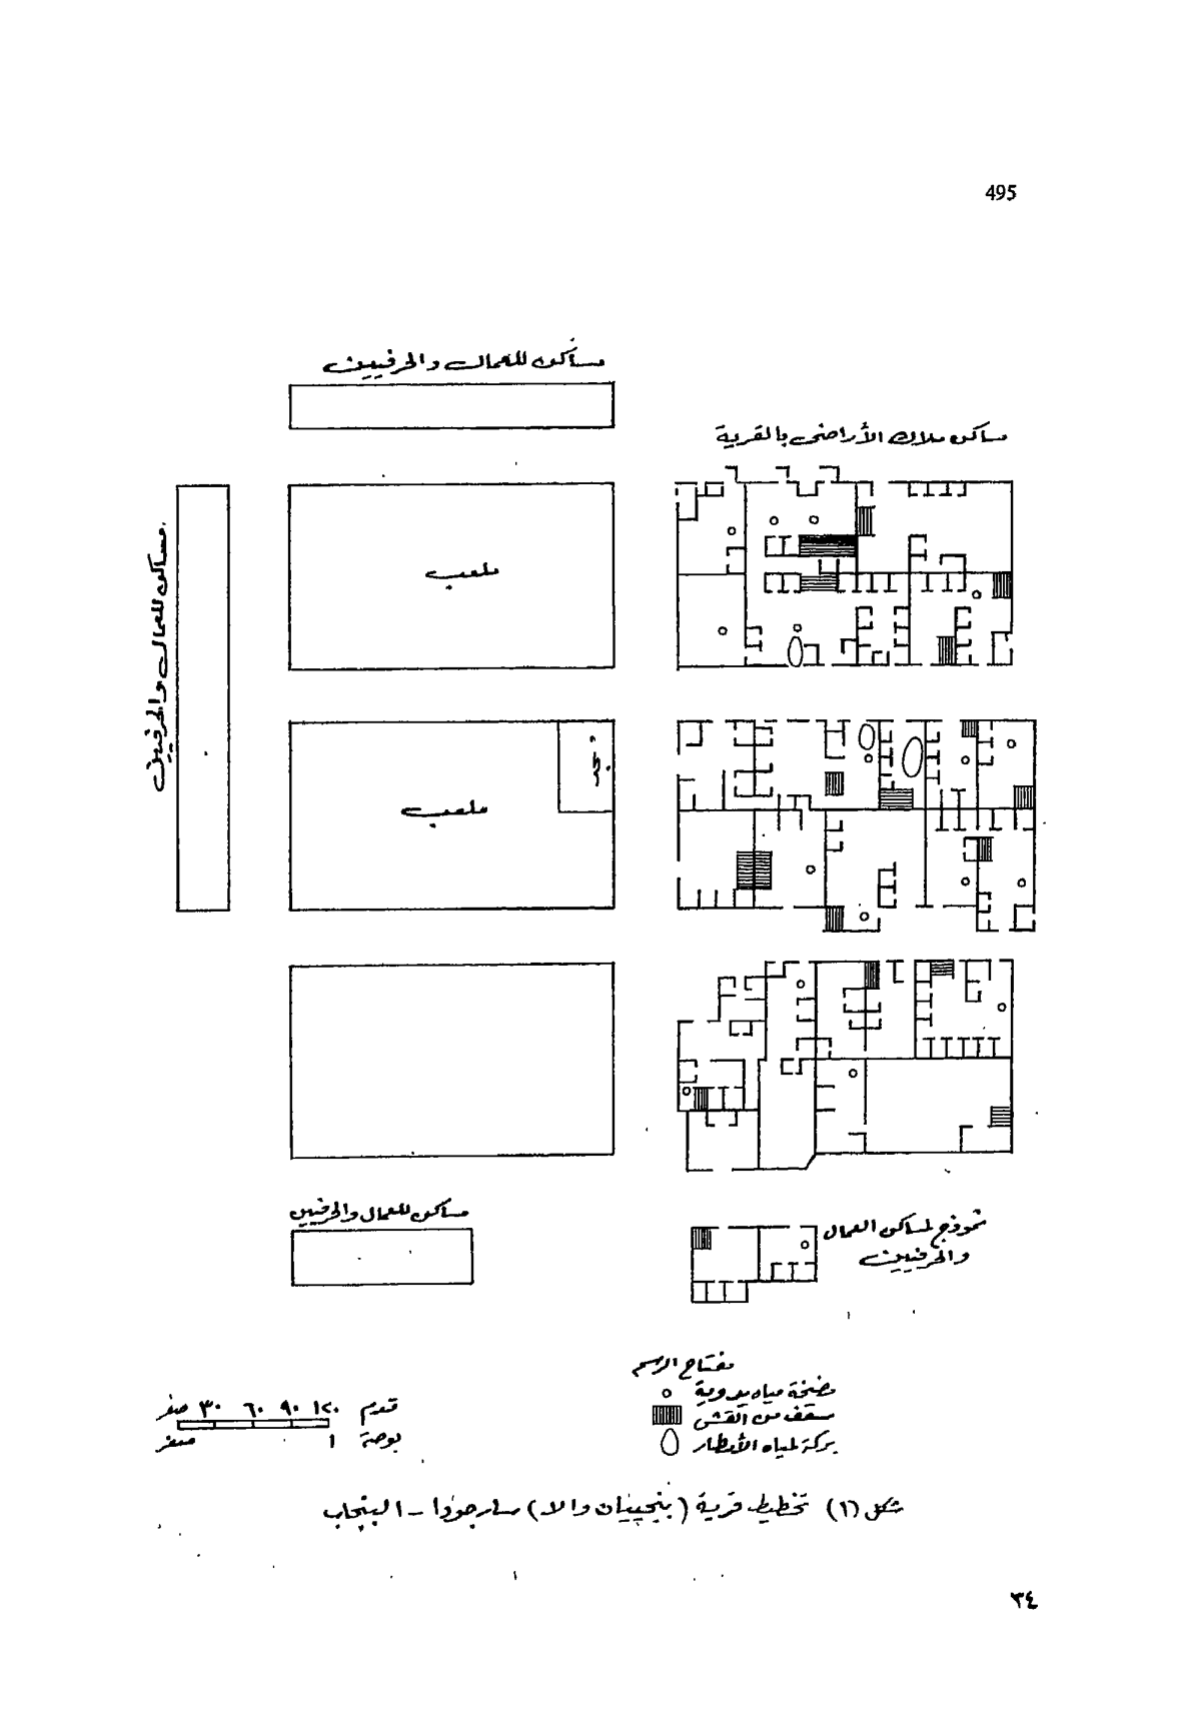 495
مساكن للعمال والحرفيين
مساكن ملاك الأراضى بالقرية
مساكن للعمال والحرفيين
ملعب
ملعب
مساكن للعمال والحرفيين
نموذج لمساكن العمال
والحرفيين
مفتاح الرسم
مضخة مياه يدوية
سقف من القش
بركة لمياه الأمطار
صفر ٣٠ ٦٠ ٩٠ ١٢٠ قدم
صفر ١ بوصة
شكل (١) تخطيط قرية (بنجيبان والا) سارجودا - البنجاب
٣٤